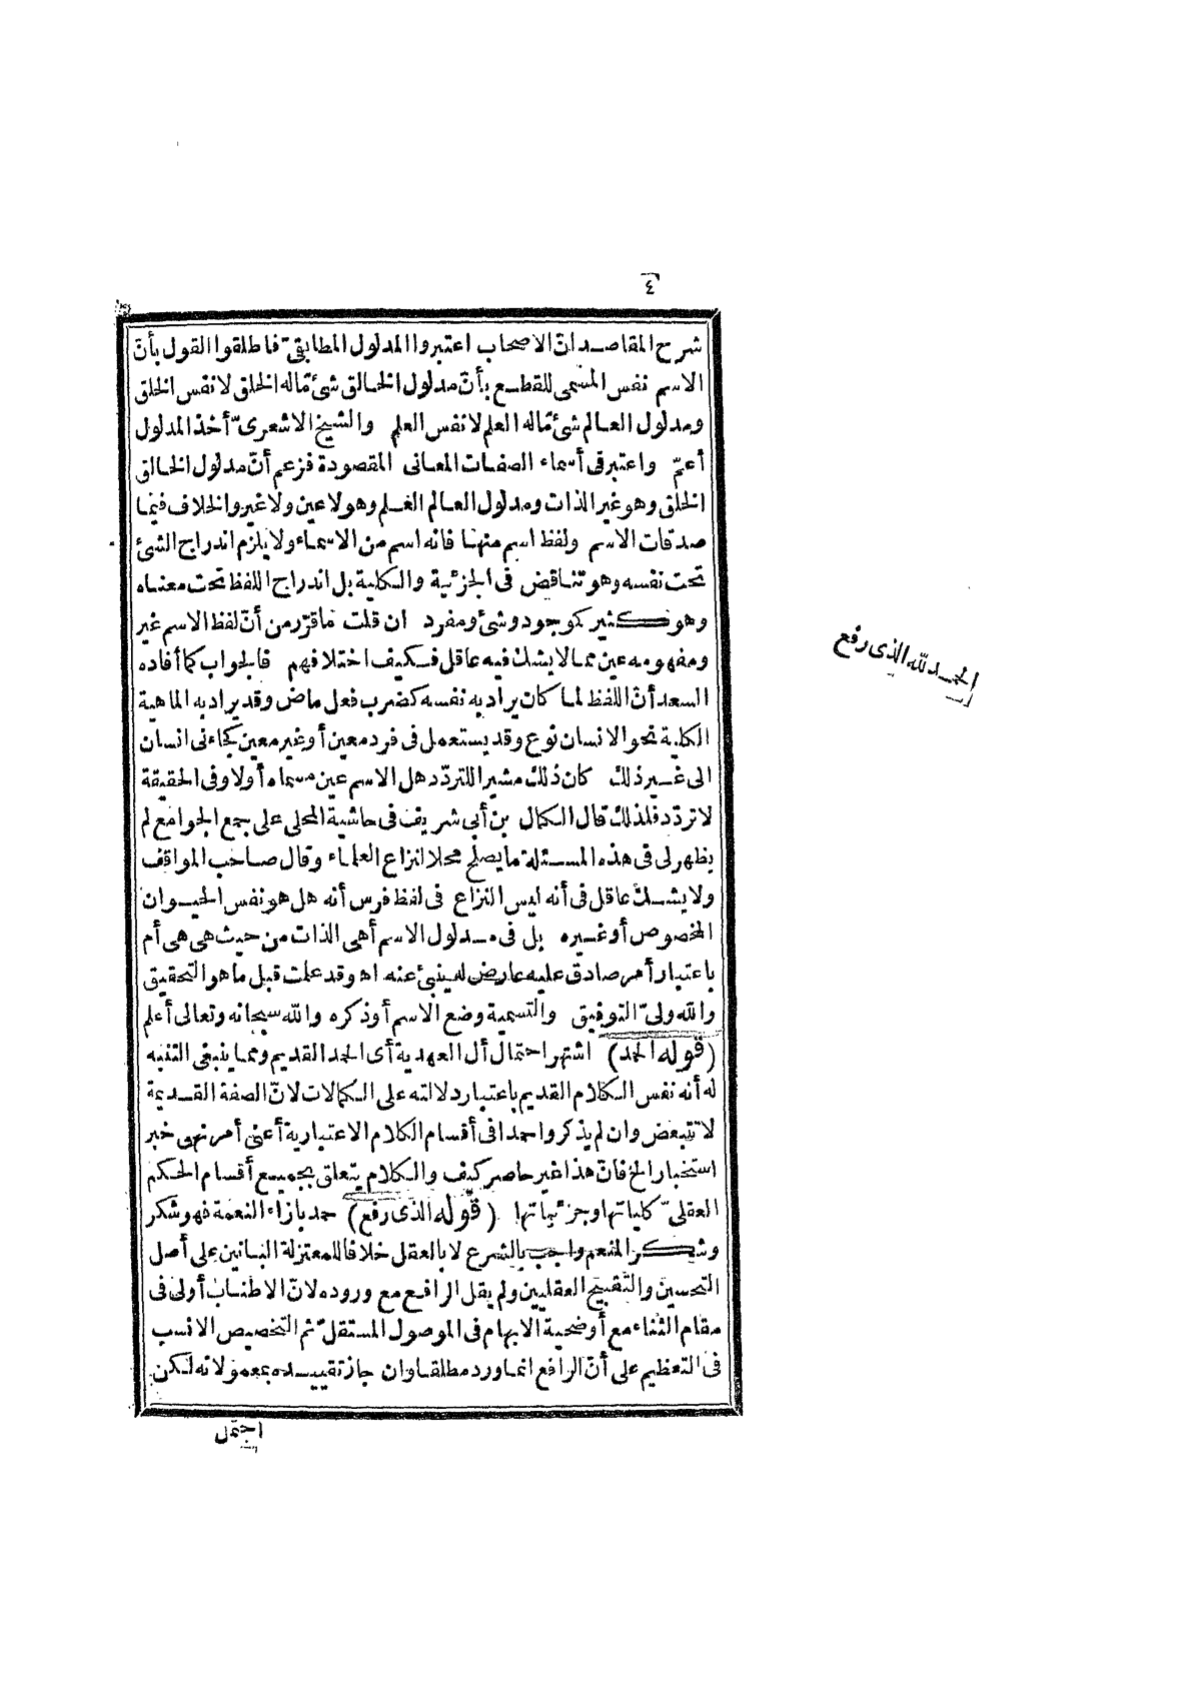 ٤
شرح المقاصد انّ الاصحاب اعتبروا المدلول المطابقىّ فاطلقوا القول بأنّ
الاسم نفس المسمى للقطع بأنّ مدلول الخالق شئ ماله الخلق لا نفس الخلق
ومدلول العالم شئ ماله العلم لا نفس العلم والشيخ الاشعرىّ أخذ المدلول
أعمّ واعتبر فى أسماء الصفات المعانى المقصودة فزعم أنّ مدلول الخالق
الخلق وهو غير الذات ومدلول العالم العلم وهو لا عين ولا غير والخلاف فيما
صدقات الاسم ولفظ اسم منها فانه اسم من الاسماء ولا يلزم اندراج الشئ
تحت نفسه وهو تناقض فى الجزئية والكلية بل اندراج اللفظ تحت معناه
وهو كثير كموجود وشئ ومفرد ان قلت ما قرّر من أنّ لفظ الاسم غير
ومفهومه عين مما لا يشك فيه عاقل فكيف اختلافهم فالجواب كما أفاده
السعد أنّ اللفظ لما كان يراد به نفسه كضرب فعل ماض وقد يراد به الماهية
الكلية نحو الانسان نوع وقد يستعمل فى فرد معين أو غير معين كجاءنى انسان
الى غير ذلك كان ذلك مشيرا للتردّد هل الاسم عين مسماه أولا وفى الحقيقة
لا تردّد فلذلك قال الكمال بن أبى شريف فى حاشية المحلى على جمع الجوامع لم
يظهر لى فى هذه المسئلة ما يصلح محلا لنزاع العلماء وقال صاحب المواقف
ولا يشك عاقل فى أنه ليس النزاع فى لفظ فرس أنه هل هو نفس الحيوان
المخصوص أو غيره بل فى مدلول الاسم أهى الذات من حيث هى هى أم
باعتبار أمر صادق عليه عارض له ينبئ عنه اه وقد علمت قبل ما هو التحقيق
والله ولىّ التوفيق والتسمية وضع الاسم أو ذكره والله سبحانه وتعالى أعلم
(قوله الحمد) اشتهر احتمال أل العهدية أى الحمد القديم ومما ينبغى التنبه
له أنه نفس الكلام القديم باعتبار دلالته على الكمالات لانّ الصفة القديمة
لا تتبعض وان لم يذكروا حمدا فى أقسام الكلام الاعتبارية أعنى أمر نهى خبر
استخبار الخ فانّ هذا غير حاصر كيف والكلام يتعلق بجميع أقسام الحكم
العقلىّ كلياتها وجزئياتها (قوله الذى رفع) حمد بازاء النعمة فهو شكر
وشكر المنعم واجب بالشرع لا بالعقل خلافا للمعتزلة البانين على أصل
التحسين والتقبيح العقليين ولم يقل الرافع مع وروده لانّ الاطناب أولى فى
مقام الثناء مع أوضحية الابهام فى الموصول المستقل ثم التخصيص الانسب
فى التعظيم على أنّ الرافع انما ورد مطلقا وان جاز تقييده بمعمولاته لكن
الحمد لله الذى رفع
احتمل